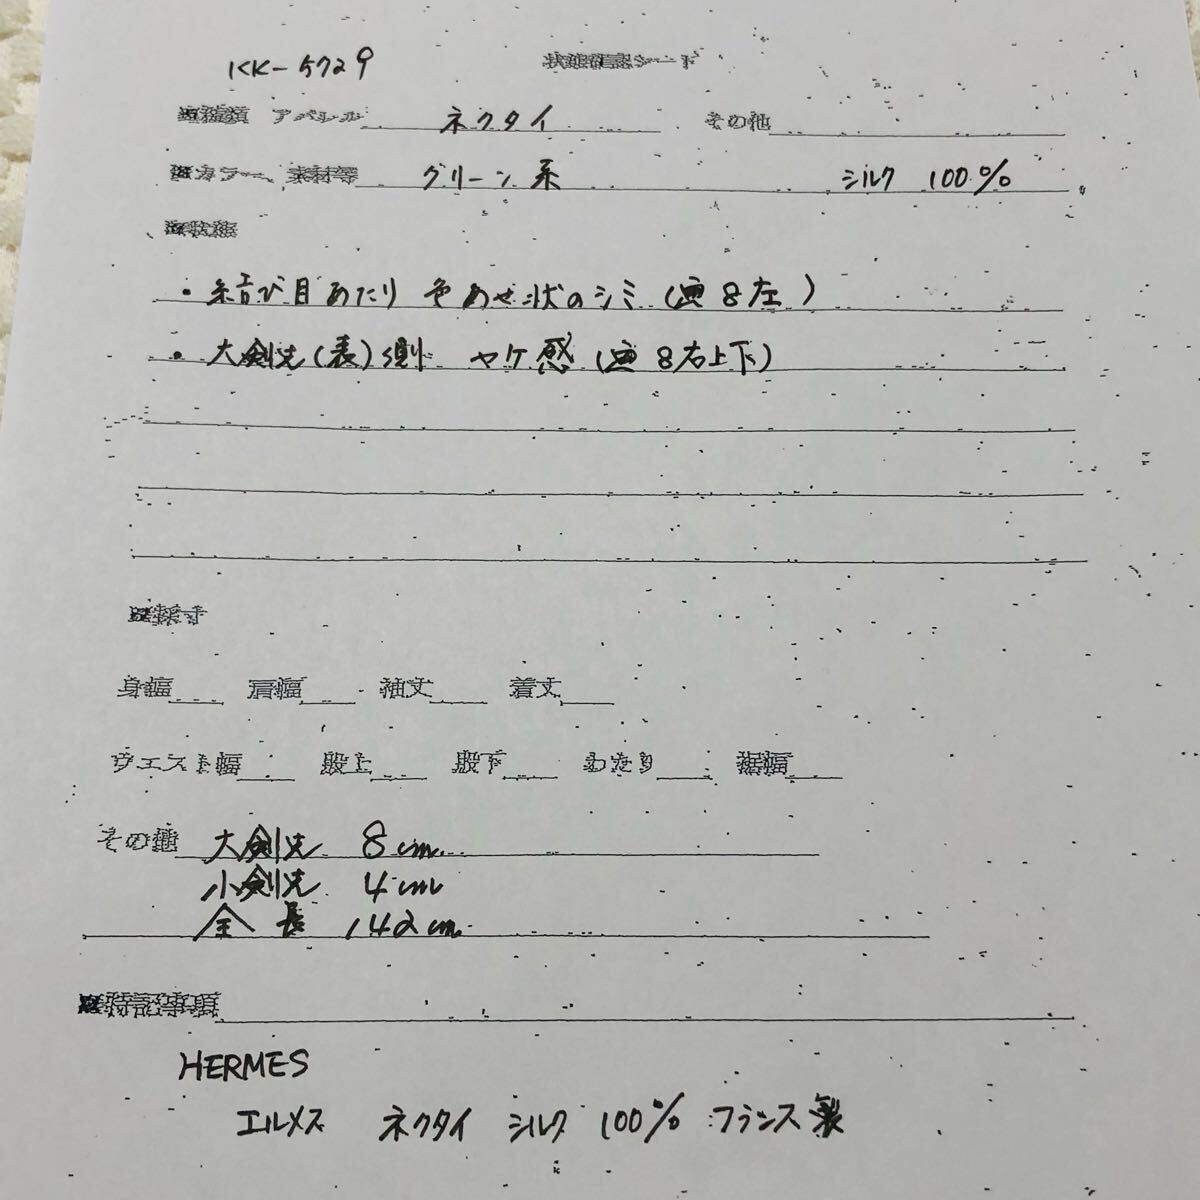 KK-5729 状態確認シート
※種類 アパレル ネクタイ その他
※カラー、素材等 グリーン系 シルク 100%
※状態
・結び目あたり 色あせ状のシミ (画8左)
・大剣先(表)側 ヤケ感 (画8右上下)
※採寸
身幅 肩幅 袖丈 着丈
ウエスト幅 股上 股下 わたり 裾幅
その他 大剣先 8cm
小剣先 4cm
全長 142cm
※特記事項
HERMES
エルメス ネクタイ シルク 100% フランス製